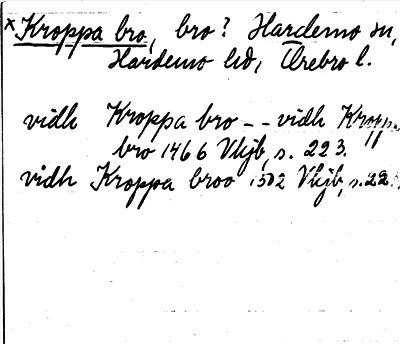 × Kroppa bro, bro? Hardemo sn,
Hardemo hd, Örebro l.
vidh Kroppa bro -- vidh Kroppa
bro 1466 Vhjb, s. 223.
vidh Kroppa broo 1502 Vhjb, s. 22